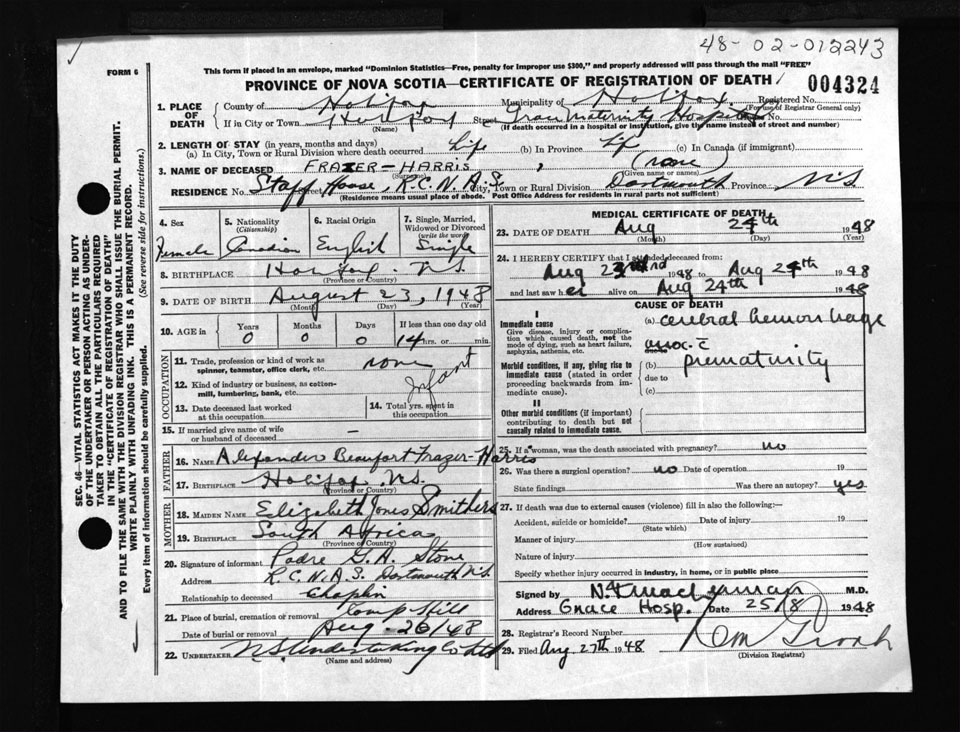 48-02-012243
FORM 6
This form if placed in an envelope, marked "Dominion Statistics—Free, penalty for improper use $300," and properly addressed will pass through the mail "FREE"
PROVINCE OF NOVA SCOTIA—CERTIFICATE OF REGISTRATION OF DEATH
004324
1. PLACE OF DEATH
County of Halifax Municipality of Halifax Registered No.
(For use of Registrar General only)
If in City or Town Halifax Street Grace Maternity Hospital No.
(Name) (If death occurred in a hospital or institution, give the name instead of street and number)
2. LENGTH OF STAY (in years, months and days)
(a) In City, Town or Rural Division where death occurred Life (b) In Province Life (c) In Canada (if immigrant)
3. NAME OF DECEASED FRAZER-HARRIS, (none)
(Surname) (Given name or names)
RESIDENCE No. Staff House, R.C.N.A.S. Street City, Town or Rural Division Dartmouth Province N.S.
(Residence means usual place of abode. Post Office Address for residents in rural parts not sufficient)
4. Sex Female
5. Nationality (Citizenship) Canadian
6. Racial Origin English
7. Single, Married, Widowed or Divorced (write the word) Single
8. BIRTHPLACE Halifax. N.S.
(Province or Country)
9. DATE OF BIRTH August 23, 1948
(Month) (Day) (Year)
10. AGE in Years 0 Months 0 Days 0 If less than one day old 14 hrs. or min.
OCCUPATION
11. Trade, profession or kind of work as spinner, teamster, office clerk, etc. non
12. Kind of industry or business, as cotton-mill, lumbering, bank, etc. Infant
13. Date deceased last worked at this occupation
14. Total yrs. spent in this occupation
15. If married give name of wife or husband of deceased —
FATHER
16. NAME Alexander Beaufort Frazer-Harris
17. BIRTHPLACE Halifax N.S.
(Province or Country)
MOTHER
18. MAIDEN NAME Elizabeth Jones Smithers
19. BIRTHPLACE South Africa
(Province or Country)
20. Signature of informant Padre G.A. Stone
Address R.C.N.A.S. Dartmouth N.S.
Relationship to deceased Chaplin
21. Place of burial, cremation or removal Camp Hill
Date of burial or removal Aug-26/48
22. UNDERTAKER N.S. Undertaking Co Ltd
(Name and address)
MEDICAL CERTIFICATE OF DEATH
23. DATE OF DEATH Aug 24th 1948
(Month) (Day) (Year)
24. I HEREBY CERTIFY that I attended deceased from:
Aug 23rd 1948 to Aug 24th 1948
and last saw her alive on Aug 24th 1948
CAUSE OF DEATH
I
Immediate cause
Give disease, injury or complication which caused death, not the mode of dying, such as heart failure, asphyxia, asthenia, etc.
(a) cerebral hemorrhage
assoc. c̄
Morbid conditions, if any, giving rise to immediate cause (stated in order proceeding backwards from immediate cause).
(b) prematurity
due to
(c)
II
Other morbid conditions (if important) contributing to death but not causally related to immediate cause.
25. If a woman, was the death associated with pregnancy? no
26. Was there a surgical operation? no Date of operation 19
State findings Was there an autopsy? yes
27. If death was due to external causes (violence) fill in also the following:—
Accident, suicide or homicide? Date of injury 19
(State which)
Manner of injury
(How sustained)
Nature of injury
Specify whether injury occurred in industry, in home, or in public place
Signed by M.D.
Address Grace Hosp. Date 25/8 1948
28. Registrar's Record Number
29. Filed Aug 27th 1948
(Division Registrar)
SEC. 46—VITAL STATISTICS ACT MAKES IT THE DUTY
OF THE UNDERTAKER OR PERSON ACTING AS UNDERTAKER TO OBTAIN ALL THE PARTICULARS REQUIRED
IN THE "CERTIFICATE OF REGISTRATION OF DEATH"
AND TO FILE THE SAME WITH THE DIVISION REGISTRAR WHO SHALL ISSUE THE BURIAL PERMIT.
WRITE PLAINLY WITH UNFADING INK. THIS IS A PERMANENT RECORD.
Every item of information should be carefully supplied. (See reverse side for instructions.)